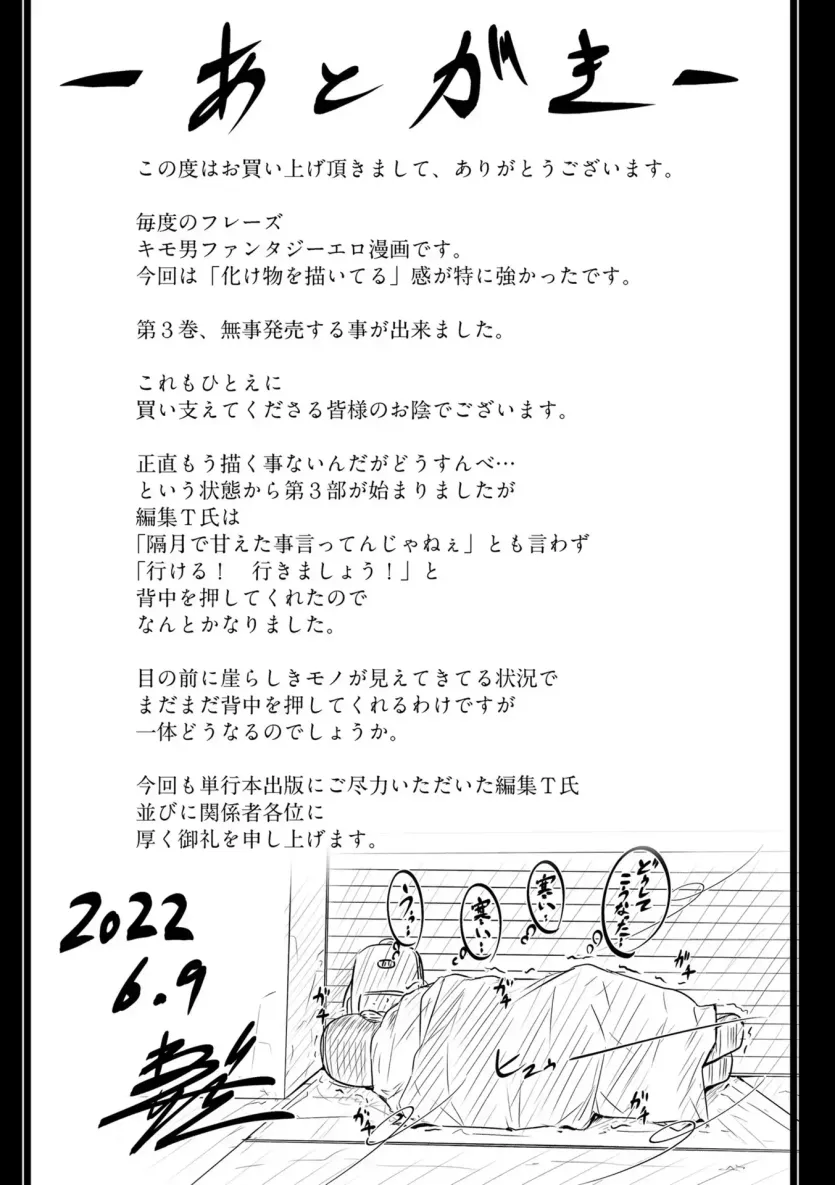 ーあとがきー
この度はお買い上げ頂きまして、ありがとうございます。
毎度のフレーズ
キモ男ファンタジーエロ漫画です。
今回は「化け物を描いてる」感が特に強かったです。
第３巻、無事発売する事が出来ました。
これもひとえに
買い支えてくださる皆様のお陰でございます。
正直もう描く事ないんだがどうすんべ…
という状態から第３部が始まりましたが
編集Ｔ氏は
「隔月で甘えた事言ってんじゃねぇ」とも言わず
「行ける！　行きましょう！」と
背中を押してくれたので
なんとかなりました。
目の前に崖らしきモノが見えてきてる状況で
まだまだ背中を押してくれるわけですが
一体どうなるのでしょうか。
今回も単行本出版にご尽力いただいた編集Ｔ氏
並びに関係者各位に
厚く御礼を申し上げます。
どうして
こうなった…
寒い…
寒い…
うぅ…
2022
6.9
ガチ
ガチ
ガチ
ガチ
ヒュゥ